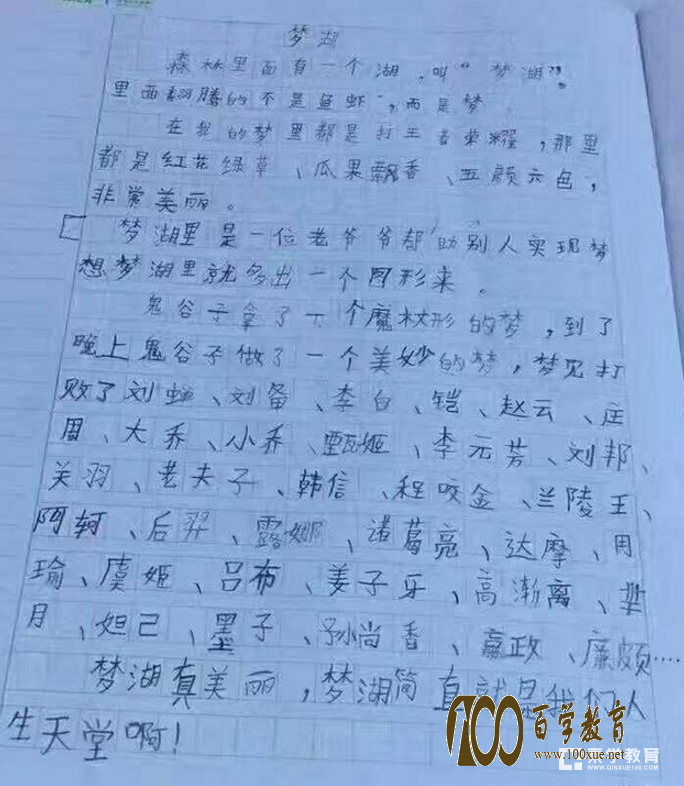 梦湖
森林里面有一个湖，叫“梦湖”。
里面翻腾的不是鱼虾，而是梦
在我的梦里都是打王者荣耀，那里
都是红花绿草、瓜果飘香、五颜六色，
非常美丽。
梦湖里是一位老爷爷帮助别人实现梦
想梦湖里就多出一个图形来。
鬼谷子拿了一个魔杖形的梦，到了
晚上鬼谷子做了一个美妙的梦，梦见打
败了刘蝉、刘备、李白、铠、赵云、庄
周、大乔、小乔、甄姬、李元芳、刘邦、
关羽、老夫子、韩信、程咬金、兰陵王、
阿轲、后羿、露娜、诸葛亮、达摩、周
瑜、虞姬、吕布、姜子牙、高渐离、芈
月、妲己、墨子、孙尚香、嬴政、廉颇……
梦湖真美丽，梦湖简直就是我们人
生天堂啊！
100百学教育
www.100xue.net
亲学教育
WWW.QINXUE100.COM